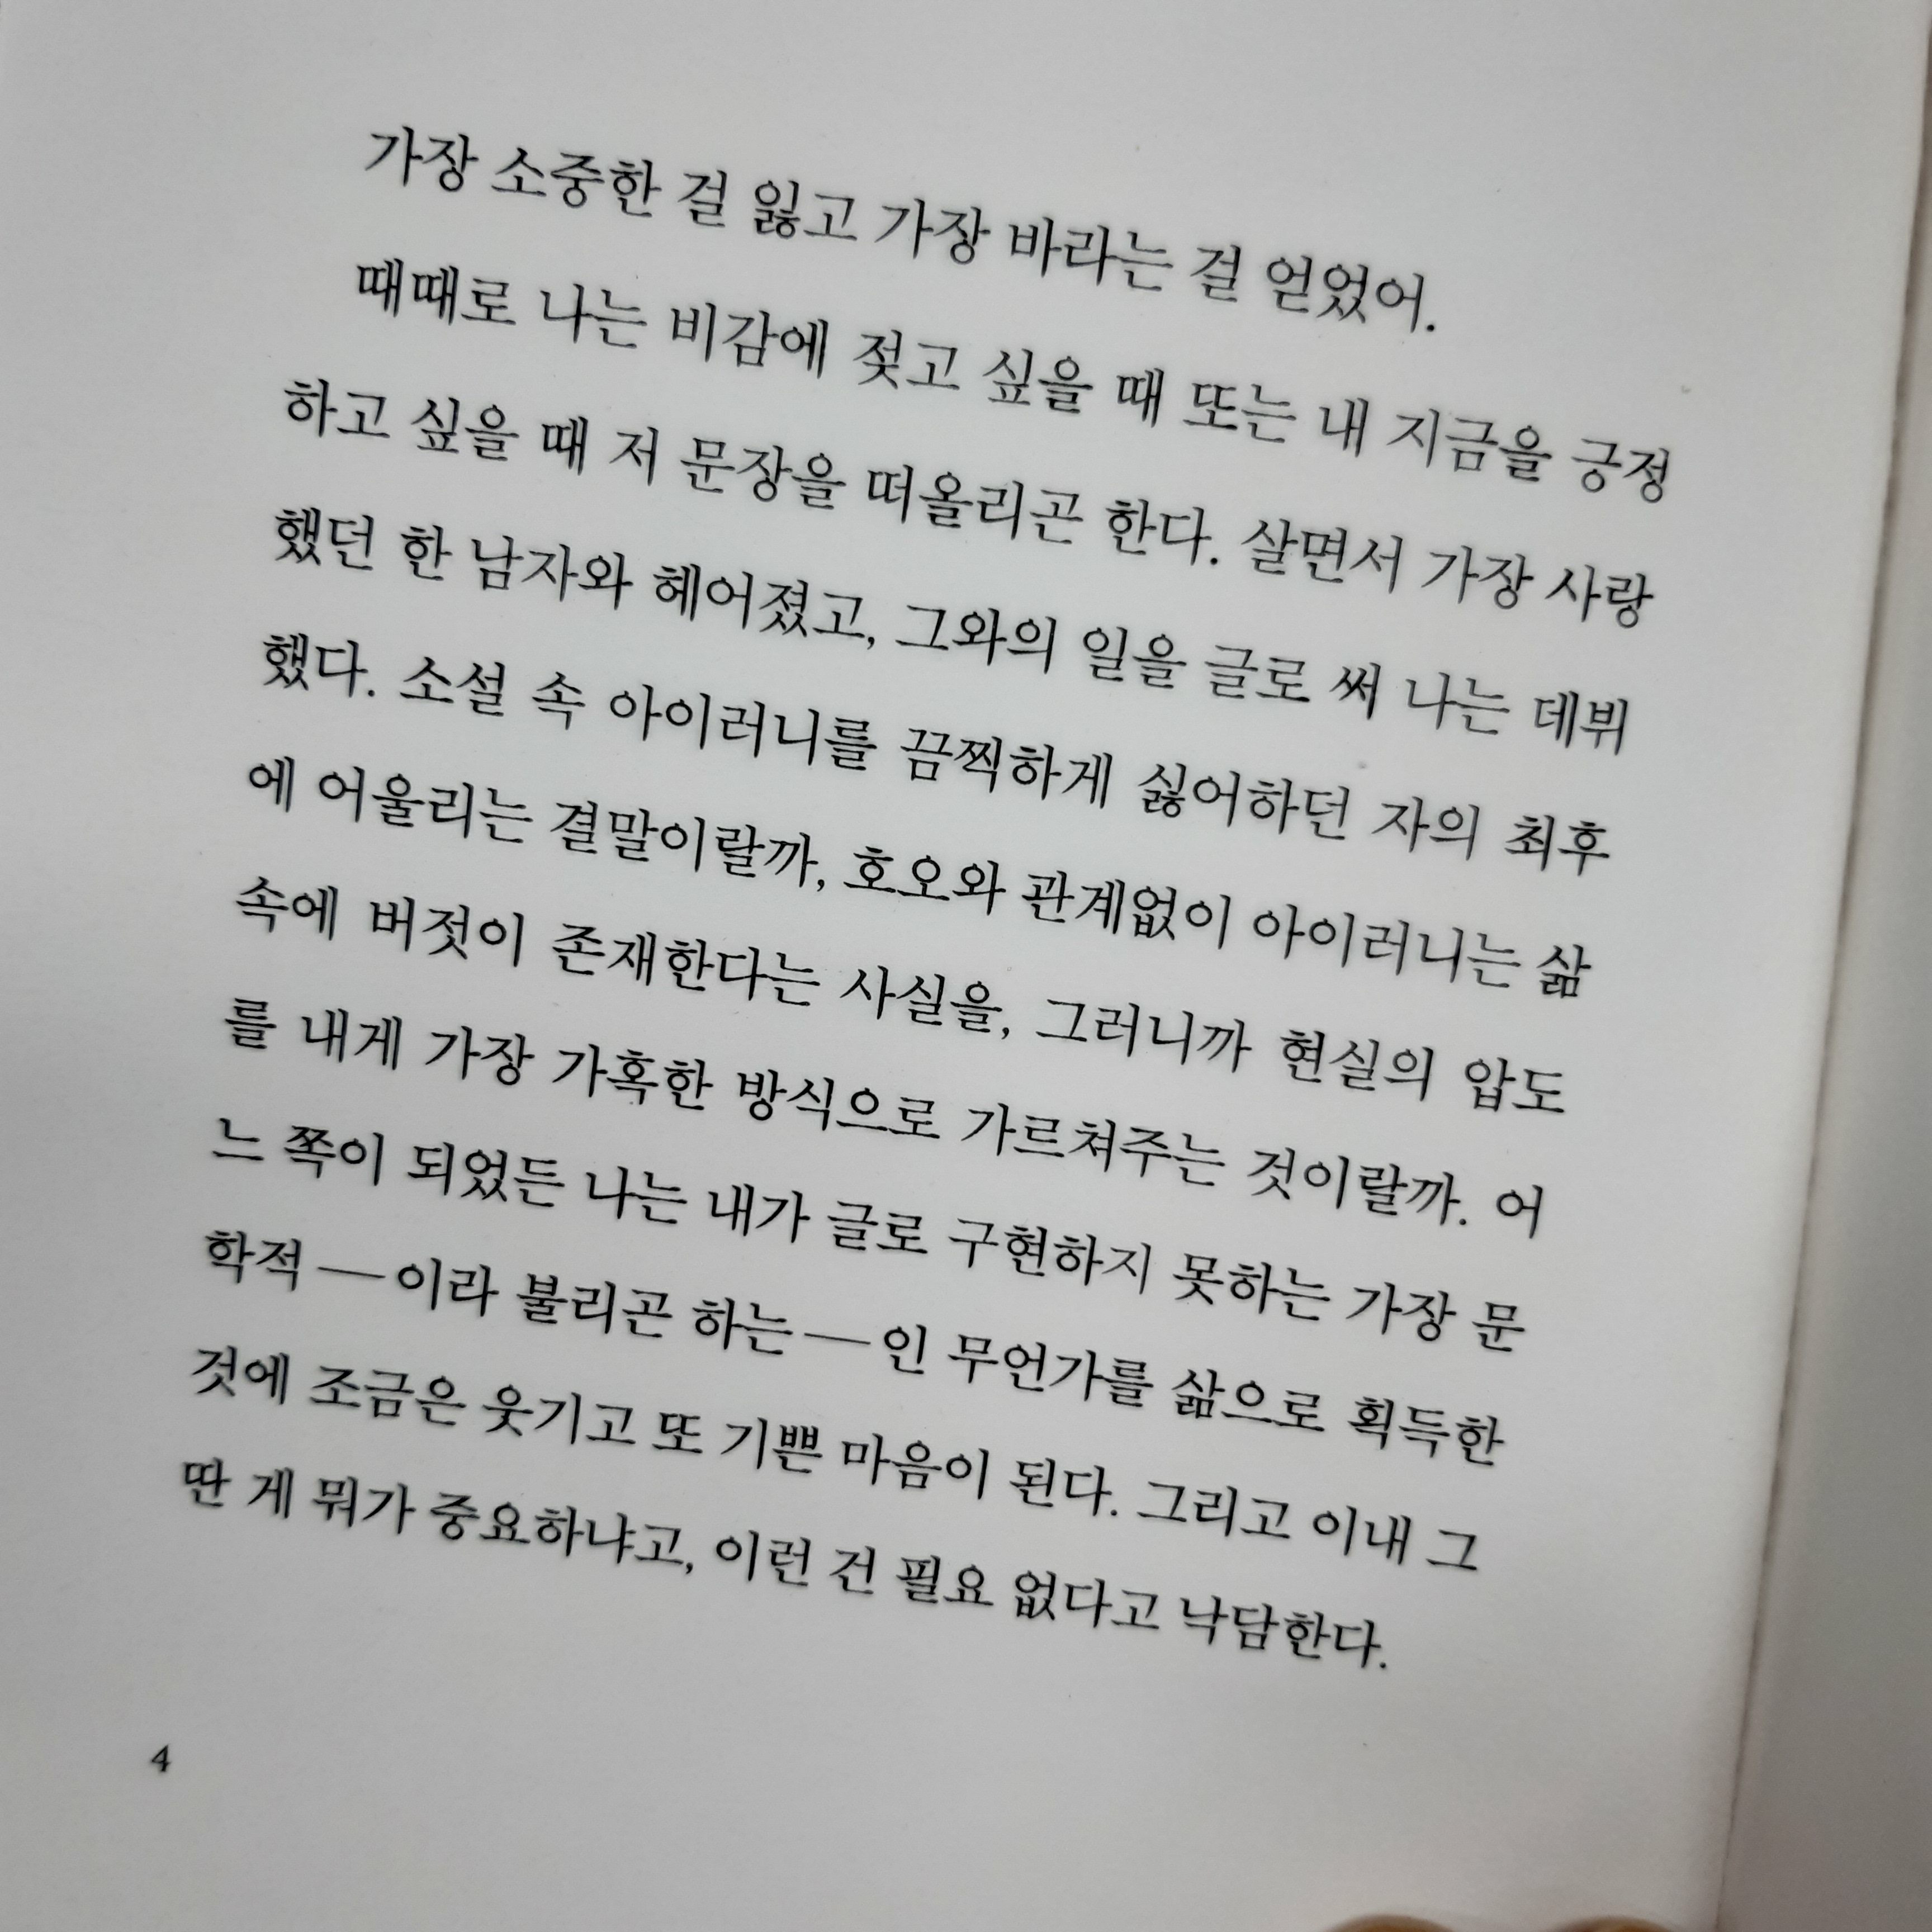 가장 소중한 걸 잃고 가장 바라는 걸 얻었어.
때때로 나는 비감에 젖고 싶을 때 또는 내 지금을 긍정
하고 싶을 때 저 문장을 떠올리곤 한다. 살면서 가장 사랑
했던 한 남자와 헤어졌고, 그와의 일을 글로 써 나는 데뷔
했다. 소설 속 아이러니를 끔찍하게 싫어하던 자의 최후
에 어울리는 결말이랄까, 호오와 관계없이 아이러니는 삶
속에 버젓이 존재한다는 사실을, 그러니까 현실의 압도
를 내게 가장 가혹한 방식으로 가르쳐주는 것이랄까. 어
느 쪽이 되었든 나는 내가 글로 구현하지 못하는 가장 문
학적 — 이라 불리곤 하는 — 인 무언가를 삶으로 획득한
것에 조금은 웃기고 또 기쁜 마음이 된다. 그리고 이내 그
딴 게 뭐가 중요하냐고, 이런 건 필요 없다고 낙담한다.
4